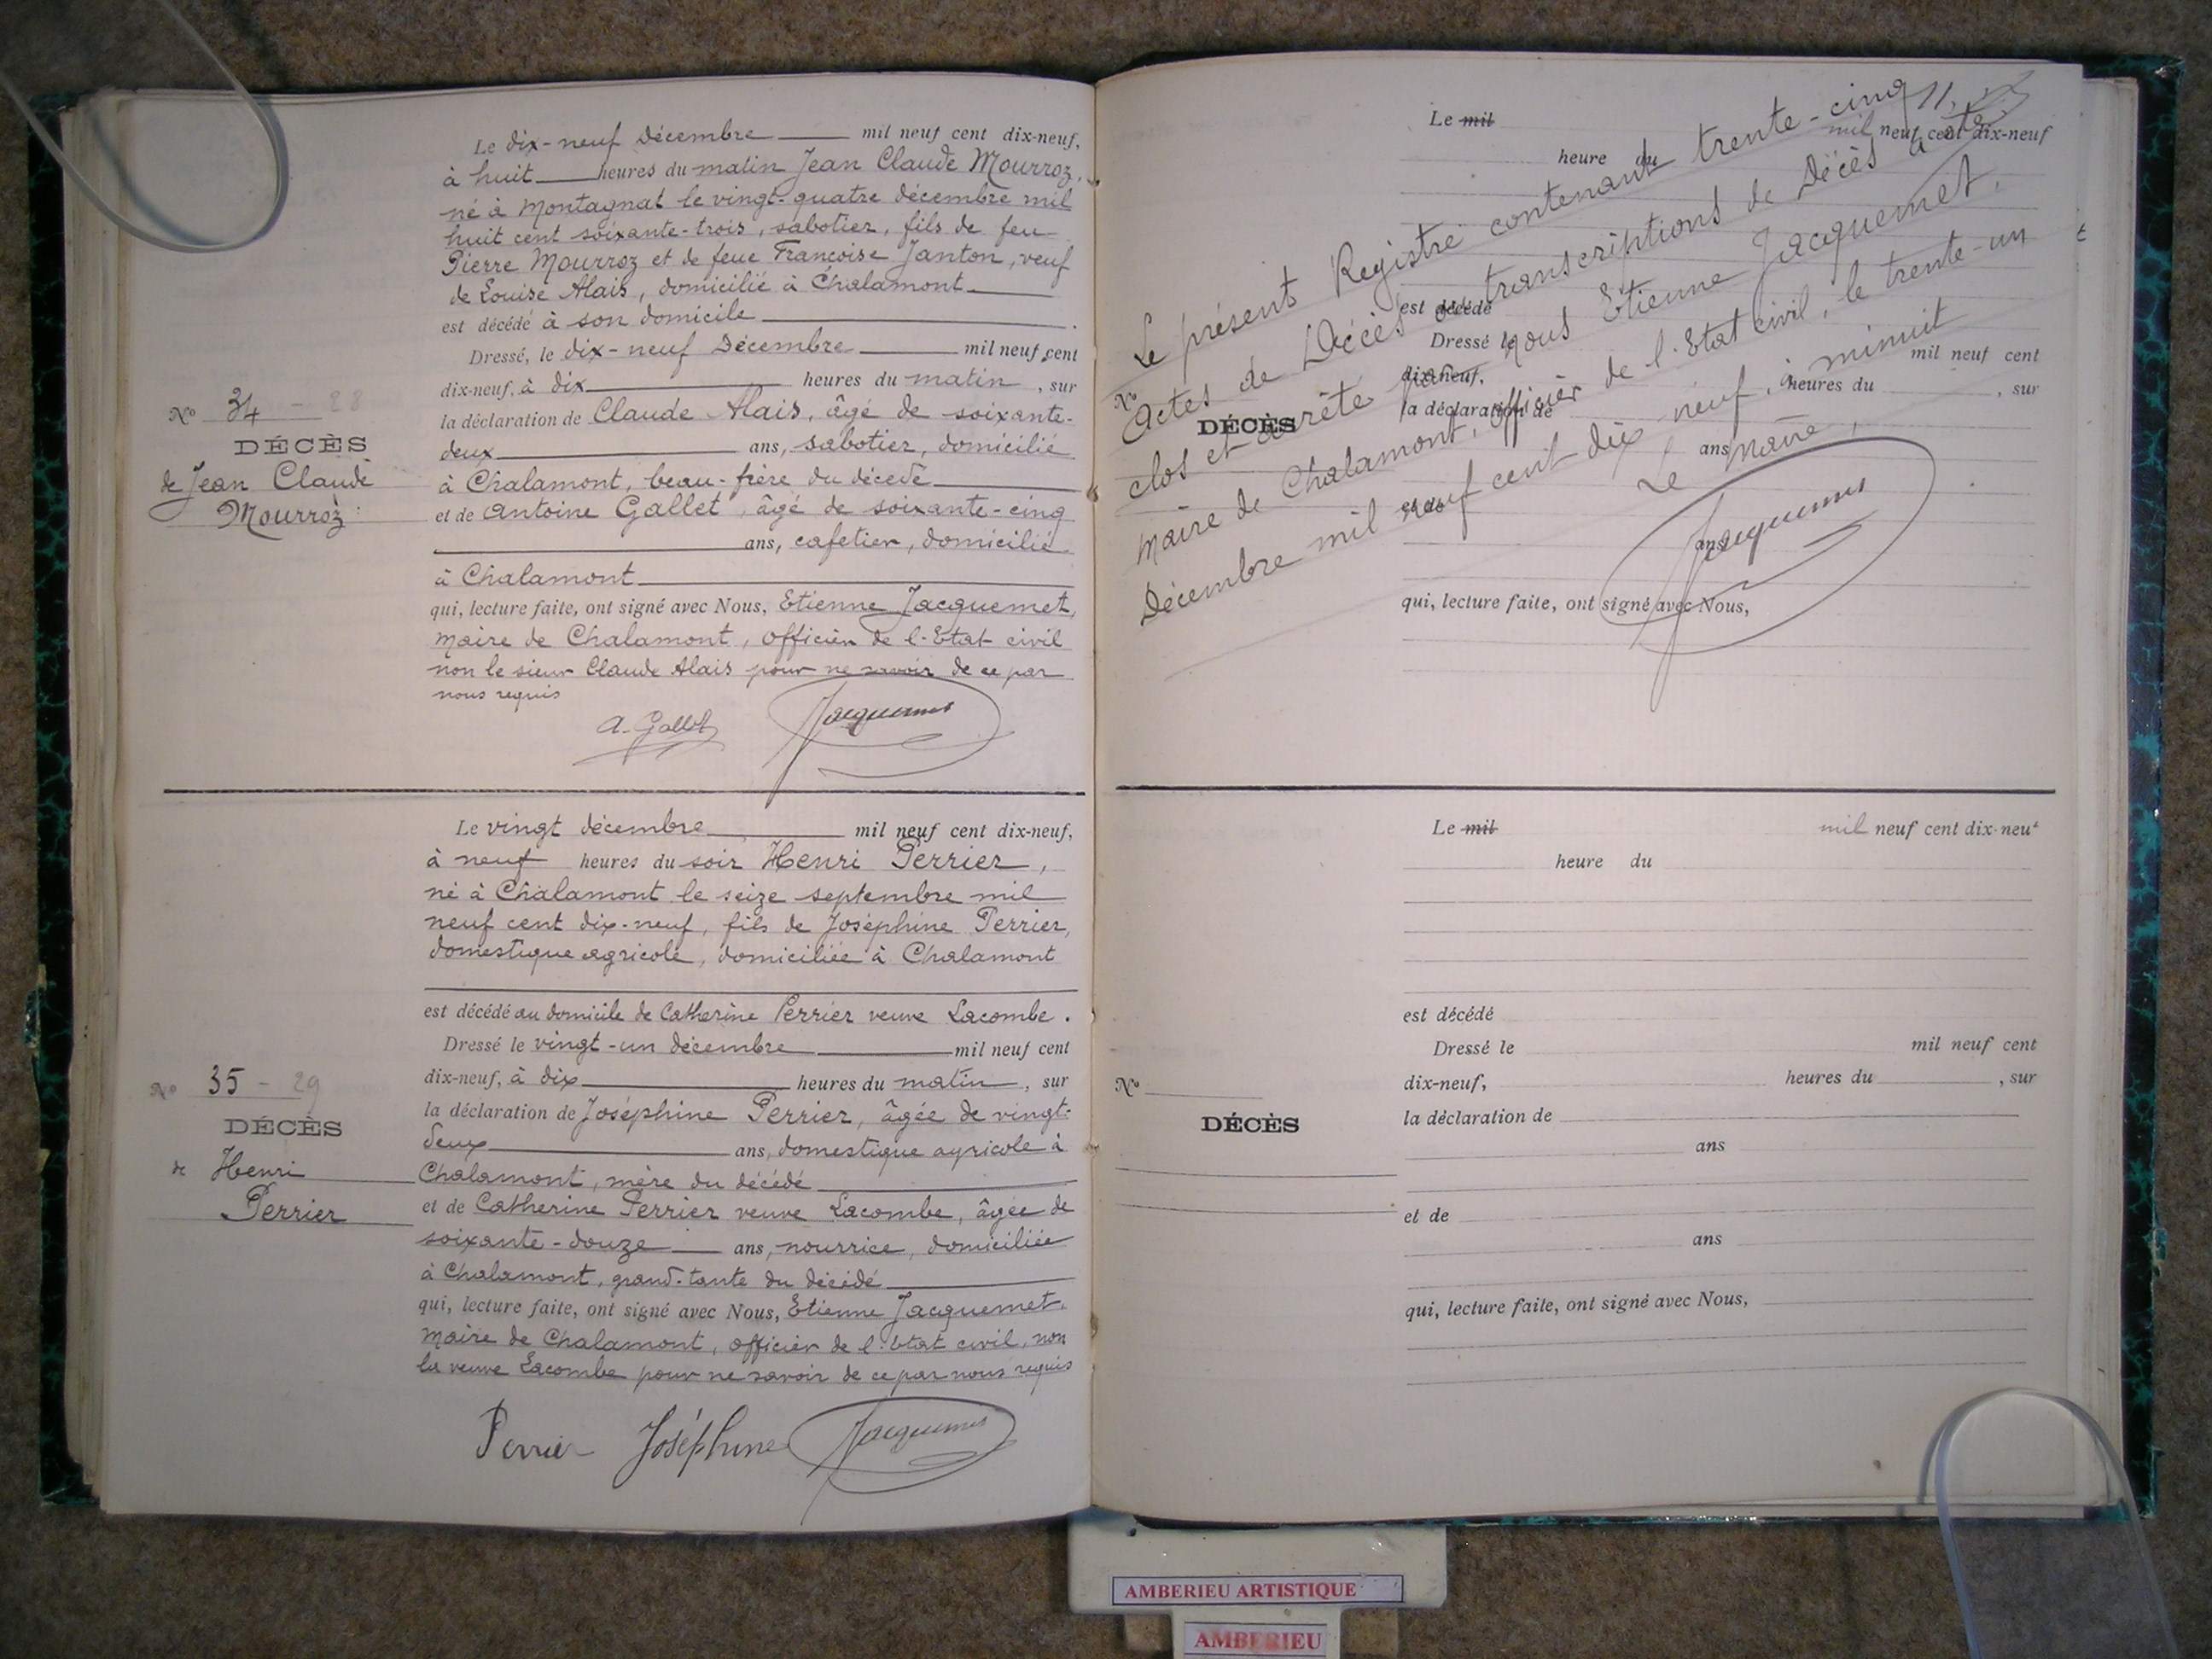 Le dix-neuf Décembre mil neuf cent dix-neuf,
à huit heures du matin Jean Claude Mourroz,
né à Montagnat le vingt-quatre décembre mil
huit cent soixante-trois, sabotier, fils de feu
Pierre Mourroz et de feue Françoise Janton, veuf
de Louise Alais, domicilié à Chalamont
est décédé à son domicile.
Dressé, le dix-neuf Décembre mil neuf cent
dix-neuf, à dix heures du matin, sur
la déclaration de Claude Alais, âgé de soixante-
deux ans, sabotier, domicilié
à Chalamont, beau-frère du décédé
et de Antoine Gallet, âgé de soixante-cinq
ans, cafetier, domicilié
à Chalamont
qui, lecture faite, ont signé avec Nous, Etienne Jacquemet,
Maire de Chalamont, officier de l'Etat civil
non le sieur Claude Alais pour ne savoir de ce par
nous requis
A. Gallet Jacquemet
N° 34 - 28
DÉCÈS
de Jean Claude
Mourroz
Le vingt décembre mil neuf cent dix-neuf,
à neuf heures du soir Henri Perrier,
né à Chalamont le seize septembre mil
neuf cent dix-neuf, fils de Joséphine Perrier,
domestique agricole, domiciliée à Chalamont
est décédé au domicile de Catherine Perrier veuve Lacombe.
Dressé le vingt-un décembre mil neuf cent
dix-neuf, à dix heures du matin, sur
la déclaration de Joséphine Perrier, âgée de vingt-
deux ans, domestique agricole à
Chalamont, mère du décédé
et de Catherine Perrier veuve Lacombe, âgée de
soixante-douze ans, nourrice, domiciliée
à Chalamont, grand-tante du décédé
qui, lecture faite, ont signé avec Nous, Etienne Jacquemet,
Maire de Chalamont, officier de l'Etat civil, non
la veuve Lacombe pour ne savoir de ce par nous requis
Perrier Joséphine Jacquemet
N° 35 - 29
DÉCÈS
de Henri
Perrier
Le présent Registre contenant trente-cinq
Actes de Décès ou transcriptions de Décès a été
clos et arrêté par nous Etienne Jacquemet,
Maire de Chalamont, officier de l'Etat civil, le trente-un
Décembre mil neuf cent dix neuf, à minuit
Le Maire,
Jacquemet
Le mil mil neuf cent dix-neuf
heure du
est décédé
Dressé le mil neuf cent
dix-neuf, heures du , sur
la déclaration de
ans
et de
ans
qui, lecture faite, ont signé avec Nous,
N°
DÉCÈS
Le mil mil neuf cent dix-neuf
heure du
est décédé
Dressé le mil neuf cent
dix-neuf, heures du , sur
la déclaration de
ans
et de
ans
qui, lecture faite, ont signé avec Nous,
N°
DÉCÈS
AMBERIEU ARTISTIQUE
AMBERIEU